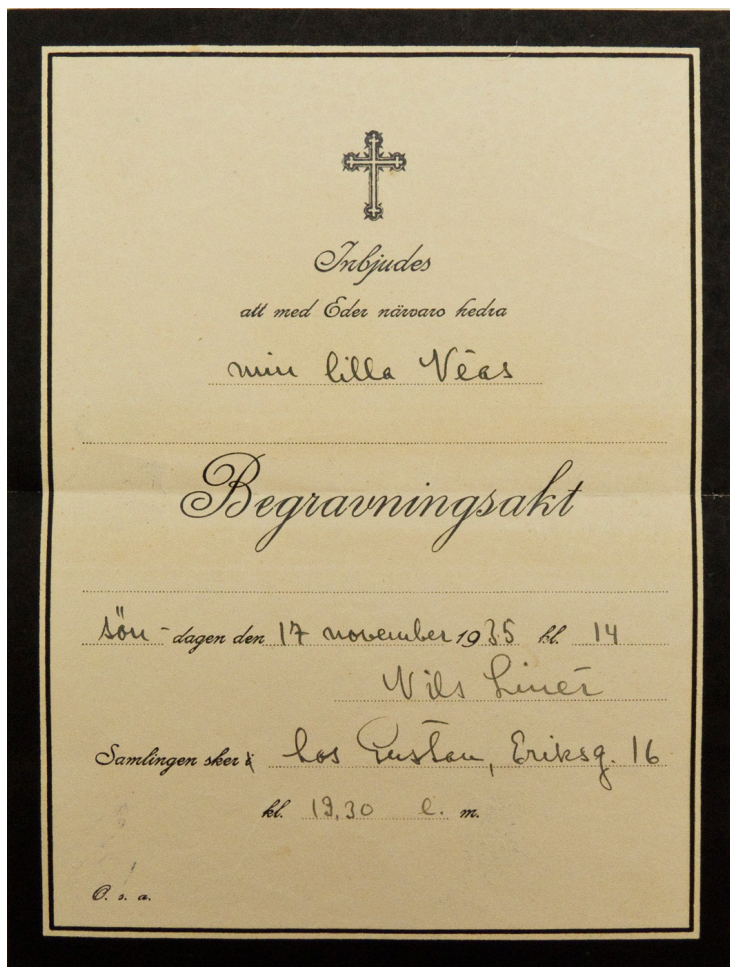 Inbjudes
att med Eder närvaro hedra
min lilla Véas
Begravningsakt
sön-dagen den 17 november 1935 kl. 14
Nils Linér
Samlingen sker hos Gustav, Eriksg. 16
kl. 13,30 e. m.
O. s. a.